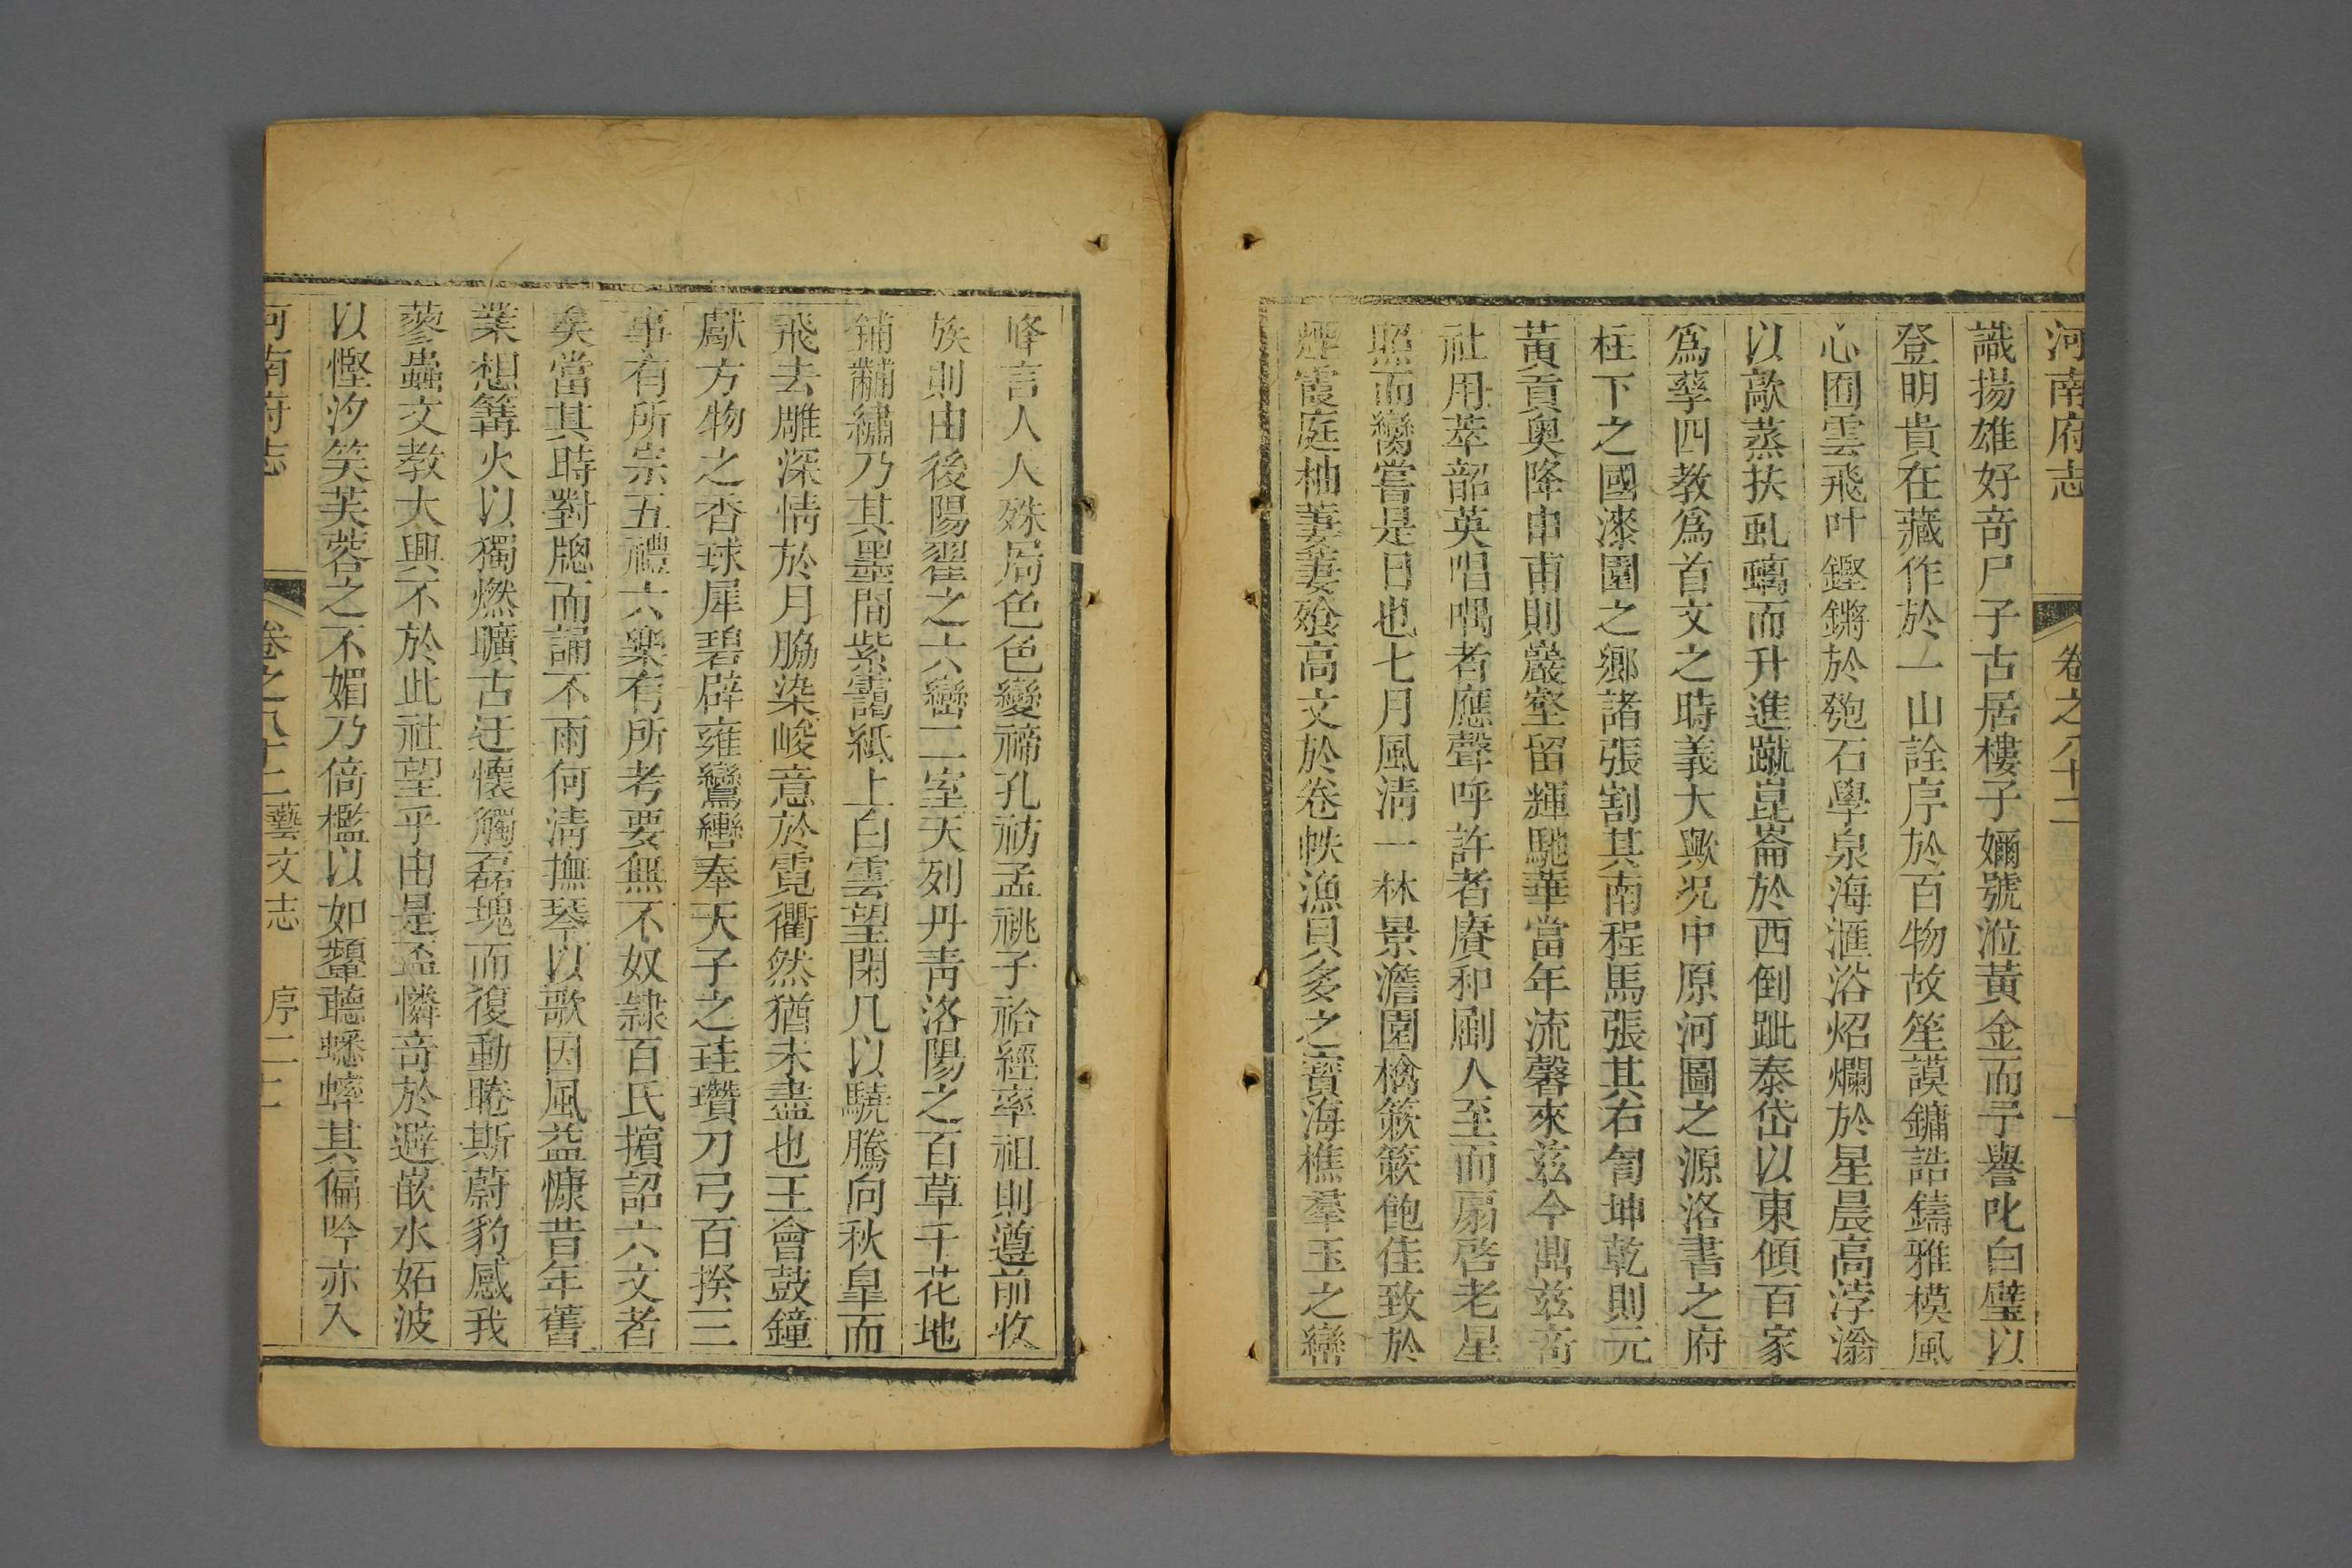 河南府志 卷之八十二
識揚雄好奇尸子古居樓子嫋號涖黃金而子譽叱白璧以
登明貴在藏作於一山詮序於百物故笙謨鏞誥鑄雅模風
心囿雲飛叶鏗鏘於匏石學泉海滙浴炤爛於星晨高浡滃
以歊蒸扶虬螭而升進蹴崑崙於西倒跐泰岱以東傾百家
爲孳四教爲首文之時義大歟况中原河圖之源洛書之府
柱下之國漆園之鄉諸張割其南程馬張其右匍坤乾則元
黃貢奥降申甫則巖壑留輝馳華當年流馨來兹今鼎兹奇
社用萃韶英唱喁者應聲呼許者賡和劚人至而扇啓老星
照而爕嘗是日也七月風清一林景澹園檎簌簌飽佳致於
煙霞庭柚萋萋飱高文於卷帙漁貝多之寶海樵羣玉之巒
峰言人人殊局色色變禘孔祊孟祧子祫經率祖則遵前收
族則由後陽翟之六巒二室天列丹靑洛陽之百草千花地
鋪黼繡乃其墨間紫靄紙上白雲望閑几以驍騰向秋皐而
飛去雕深情於月脇染峻意於霓衢然猶未盡也王會鼓鐘
獻方物之杳球犀碧辟雍鸞轡奉天子之珪瓚刀弓百揆三
事有所宗五禮六樂有所考要無不奴隷百氏擯詔六文者
矣當其時對牕而誦不雨何清撫琴以歌因風益慷昔年舊
業想篝火以獨燃曠古迂懷觸磊塊而復動睠斯蔚豹感我
蓼蟲文教大興不於此社望乎由是盃憐奇於避嵌水妬波
以慳汐笑芙蓉之不媚乃倚檻以如顰聽蟋蟀其偏吟亦入
河南府志 卷之八十二 藝文志 序二 二